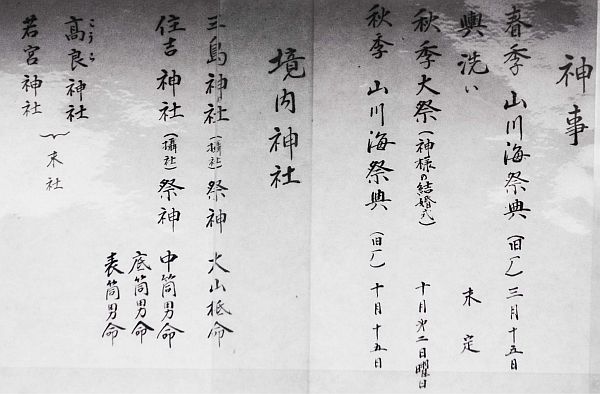 神事
春季 山川海祭典 (旧八) 三月十五日
輿洗い 未定
秋季大祭 (神様の結婚式) 十月第二日曜日
秋季 山川海祭典 (旧八) 十月十五日
境内神社
三島神社 (摂社) 祭神 大山祗命
住吉神社 (攝社) 祭神 中筒男命
底筒男命
表筒男命
高良神社 こうら
若宮神社
末社